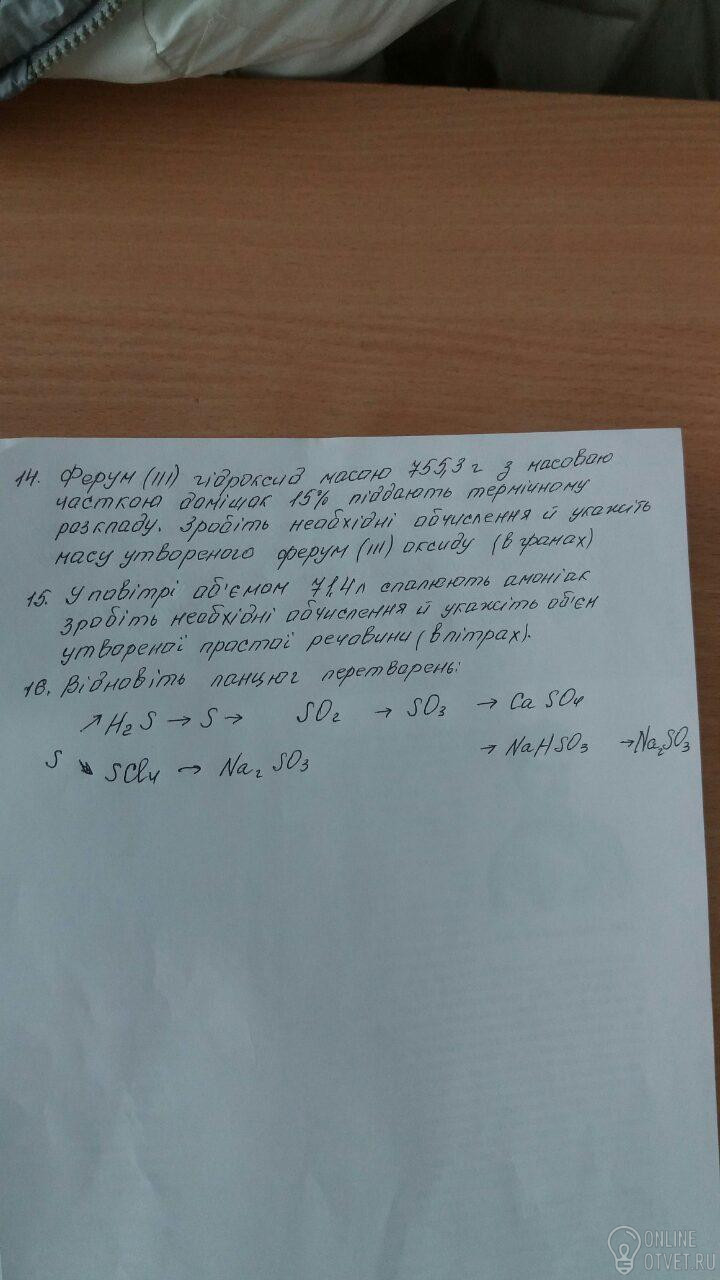 14. Ферум (III) гідроксид масою 755,3 г з масовою
часткою домішак 15% піддають термічному
розкладу. Зробіть необхідні обчислення й укажіть
масу утвореного ферум (III) оксиду (в грамах)
15. У повітрі об'ємом 71,4 л спалюють амоніак
зробіть необхідні обчислення й укажіть об'єм
утвореної простої речовини (в літрах).
16. Відновіть ланцюг перетворень:
↗ H₂S → S → SO₂ → SO₃ → CaSO₄
S ↘ SCl₄ → Na₂SO₃ → NaHSO₃ → Na₂SO₃
ONLINE
OTVET.RU